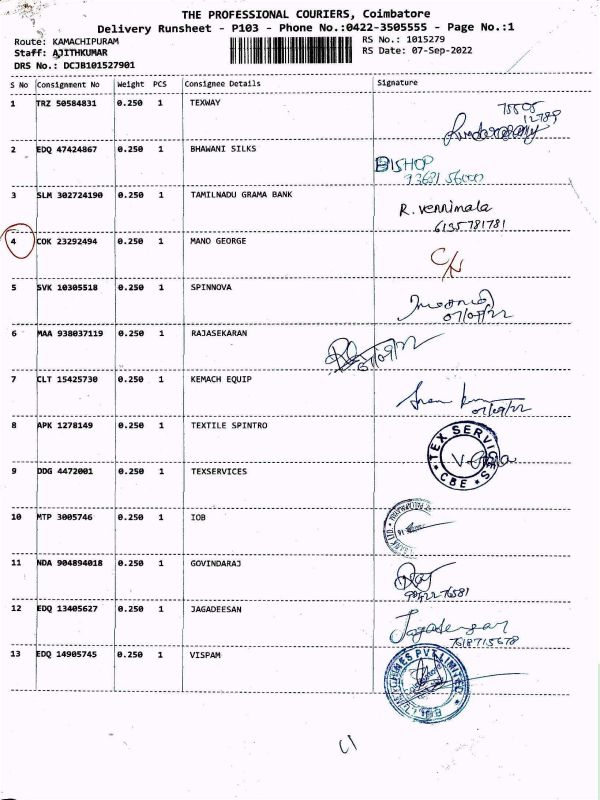 THE PROFESSIONAL COURIERS, Coimbatore
Delivery Runsheet - P103 - Phone No.:0422-3505555 - Page No.:1
Route: KAMACHIPURAM RS No.: 1015279
Staff: AJITHKUMAR RS Date: 07-Sep-2022
DRS No.: DCJB101527901
S No Consignment No Weight PCS Consignee Details Signature
1 TRZ 50584831 0.250 1 TEXWAY
2 EDQ 47424867 0.250 1 BHAWANI SILKS BISHOP
3 SLM 302724190 0.250 1 TAMILNADU GRAMA BANK R. vennimala
6135781781
4 COK 23292494 0.250 1 MANO GEORGE C/N
5 SVK 10305518 0.250 1 SPINNOVA
07/09/22
6 MAA 938037119 0.250 1 RAJASEKARAN 07/09/22
7 CLT 15425730 0.250 1 KEMACH EQUIP
07/09/22
8 APK 1278149 0.250 1 TEXTILE SPINTRO
TEX SERVICES
CBE
9 DDG 4472001 0.250 1 TEXSERVICES
10 MTP 3005746 0.250 1 IOB
11 NDA 904894018 0.250 1 GOVINDARAJ
12 EDQ 13405627 0.250 1 JAGADEESAN Jagadeesan
7618715678
13 EDQ 14905745 0.250 1 VISPAM
PVT LIMITED